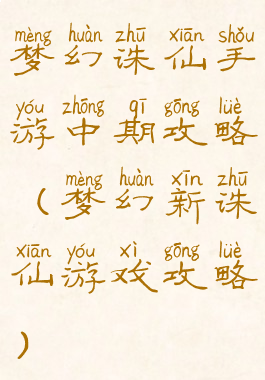 mèng huàn zhū xiān shǒu
梦幻诛仙手
yóu zhōng qī gōng lüè
游中期攻略
mèng huàn xīn zhū
（梦幻新诛
xiān yóu xì gōng lüè
仙游戏攻略
）